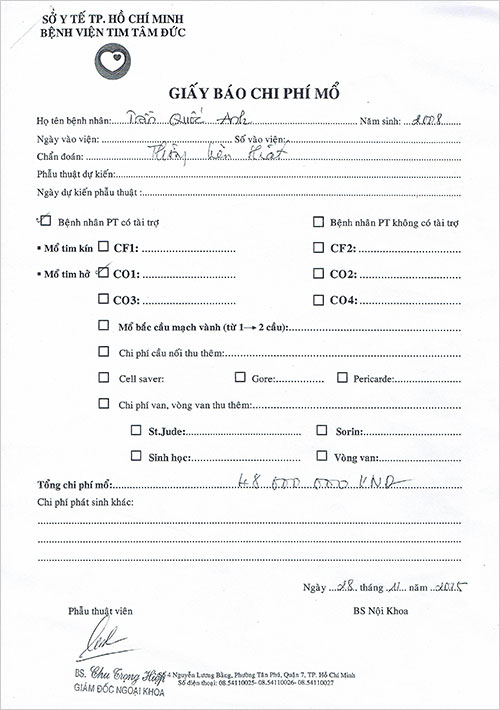 SỞ Y TẾ TP. HỒ CHÍ MINH
BỆNH VIỆN TIM TÂM ĐỨC
GIẤY BÁO CHI PHÍ MỔ
Họ tên bệnh nhân: Trần Quốc Anh Năm sinh: 2008
Ngày vào viện: Số vào viện:
Chẩn đoán: Thông liên thất
Phẫu thuật dự kiến:
Ngày dự kiến phẫu thuật :
Bệnh nhân PT có tài trợ Bệnh nhân PT không có tài trợ
▪ Mổ tim kín CF1: CF2:
▪ Mổ tim hở CO1: CO2:
CO3: CO4:
Mổ bắc cầu mạch vành (từ 1→ 2 cầu):
Chi phí cầu nối thu thêm:
Cell saver: Gore: Pericarde:
Chi phí van, vòng van thu thêm:
St.Jude: Sorin:
Sinh học: Vòng van:
Tổng chi phí mổ: 48 000 000 VND
Chi phí phát sinh khác:
Ngày 28 tháng 11 năm 2015
Phẫu thuật viên BS Nội Khoa
BS. Chu Trọng Hiệp
4 Nguyễn Lương Bằng, Phường Tân Phú, Quận 7, TP. Hồ Chí Minh
GIÁM ĐỐC NGOẠI KHOA
Số điện thoại: 08.54110025- 08.54110026- 08.54110027